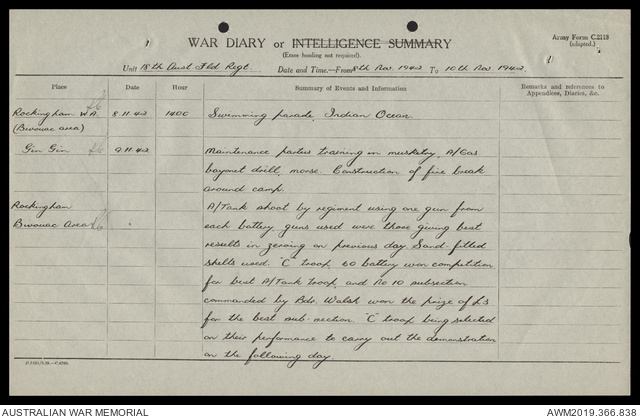 Army Form C.2118
(adapted.)
WAR DIARY or INTELLIGENCE SUMMARY
(Erase heading not required).
Unit 18th Aust Fld Regt. Date and Time.—From 8th Nov. 1942 To 10th Nov. 1942.
Place Date Hour Summary of Events and Information Remarks and references to Appendices, Diaries, &c.
Rockingham W.A. 8.11.42 1400 Swimming parade, Indian Ocean.
(Bivouac area)
Gin Gin 9.11.42 Maintenance parties training in musketry, A/Gas
bayonet drill, morse. Construction of fire break
around camp.
Rockingham A/Tank shoot by regiment using one gun from
Bivouac Area each battery guns used were those giving best
results in zeroing on previous day. Sand-filled
shells used. "C" troop, 60 battery won competition
for best A/Tank troop, and No 10 subsection
commanded by Bdr. Walsh won the prize of £3
for the best sub-section. "C" troop being selected
on their performance to carry out the demonstration
on the following day.
AUSTRALIAN WAR MEMORIAL AWM2019.366.838